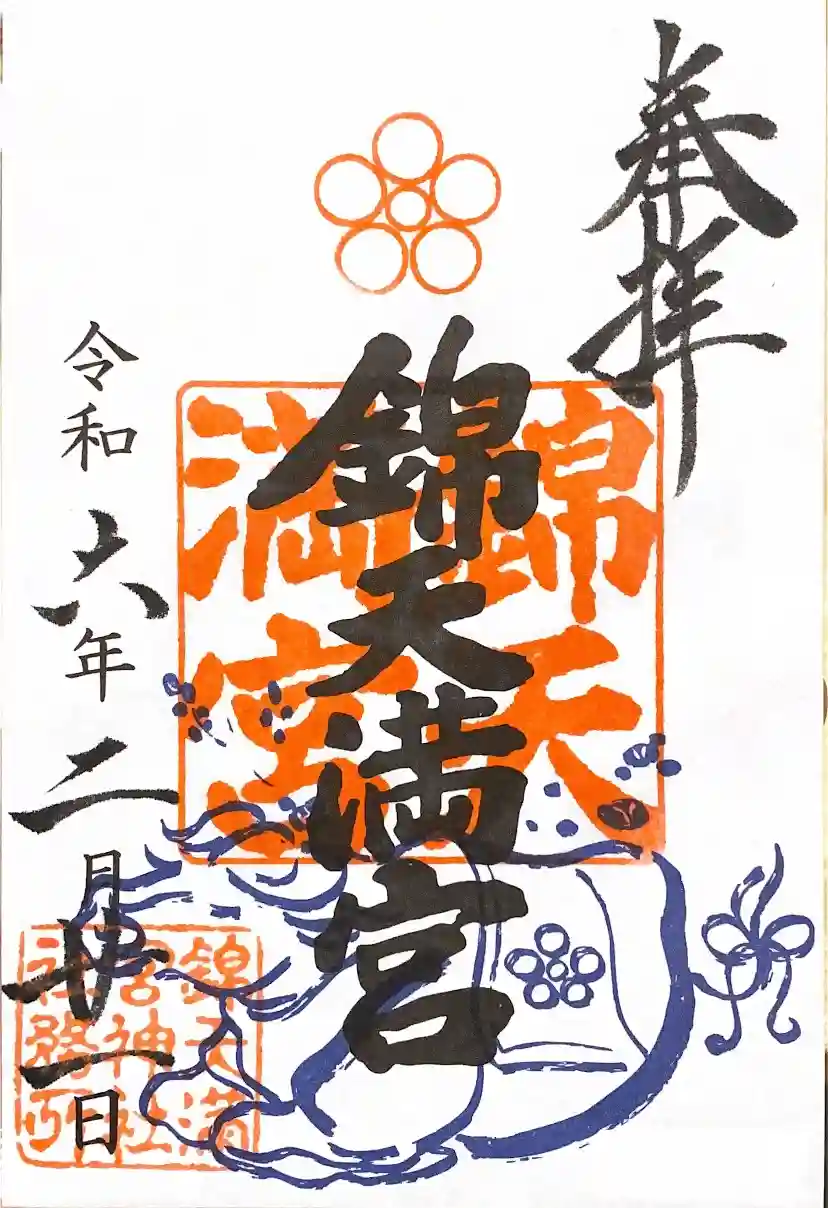 奉拝
錦天満宮
錦天
満宮
令和六年二月廿一日
錦天満
宮神社
社務所